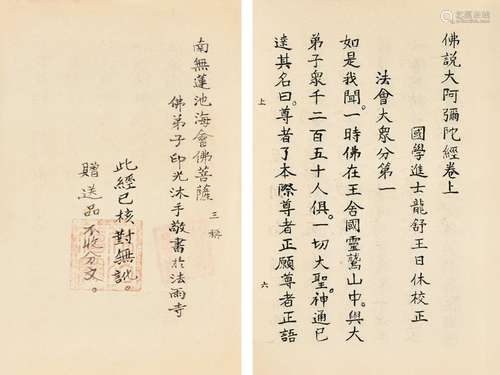 佛說大阿彌陀經卷上
國學進士龍舒王日休校正
法會大衆分第一
如是我聞。一時佛在王舍國靈鷲山中。與大
弟子衆千二百五十人俱。一切大聖。神通已
達。其名曰。尊者了本際尊者正願尊者正語
上
六
南無蓮池海會佛菩薩 三稱
佛弟子印光沐手敬書於法雨寺
此經已核對無訛。
贈送品不收分文。